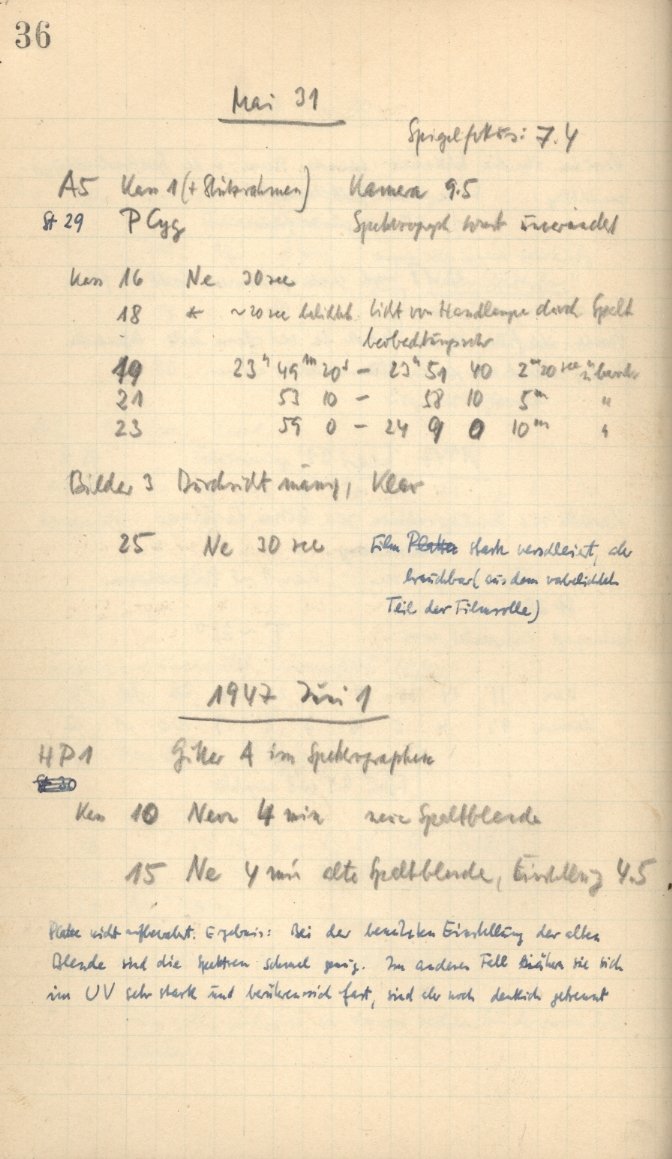 36
Mai 31
Spiegelfokus: 7.4
A5 Kass 1 (+ Stützrahmen) Kamera 9.5
St 29 P Cyg Spektrograph sonst unverändert
Kass 16 Ne 30 sec
18 * ~20 sec belichtet. Licht von Handlampe durch Spalt
beobachtungsrohr
19 23h 49m 20s – 23h 51 40 2m 20 sec
21 53 10 – 58 10 5m "
23 59 0 – 24 9 0 10m "
Bilder 3 Durchsicht mässig, Klar
25 Ne 30 sec Film Platte stark verschleiert, aber
brauchbar (aus dem vorbelichteten
Teil der Filmrolle)
1947 Juni 1
HP1 Gitter A im Spektrographen
St 30
Kass 10 Neon 4 min neue Spaltblende
15 Ne 4 min alte Spaltblende, Einstellung 4.5
Platte nicht aufbewahrt. Ergebnis: Bei der benutzten Einstellung der alten
Blende sind die Spektren schmal genug. Im anderen Fall sie sich
im UV sehr stark und berühren sich fast, sind aber noch deutlich getrennt